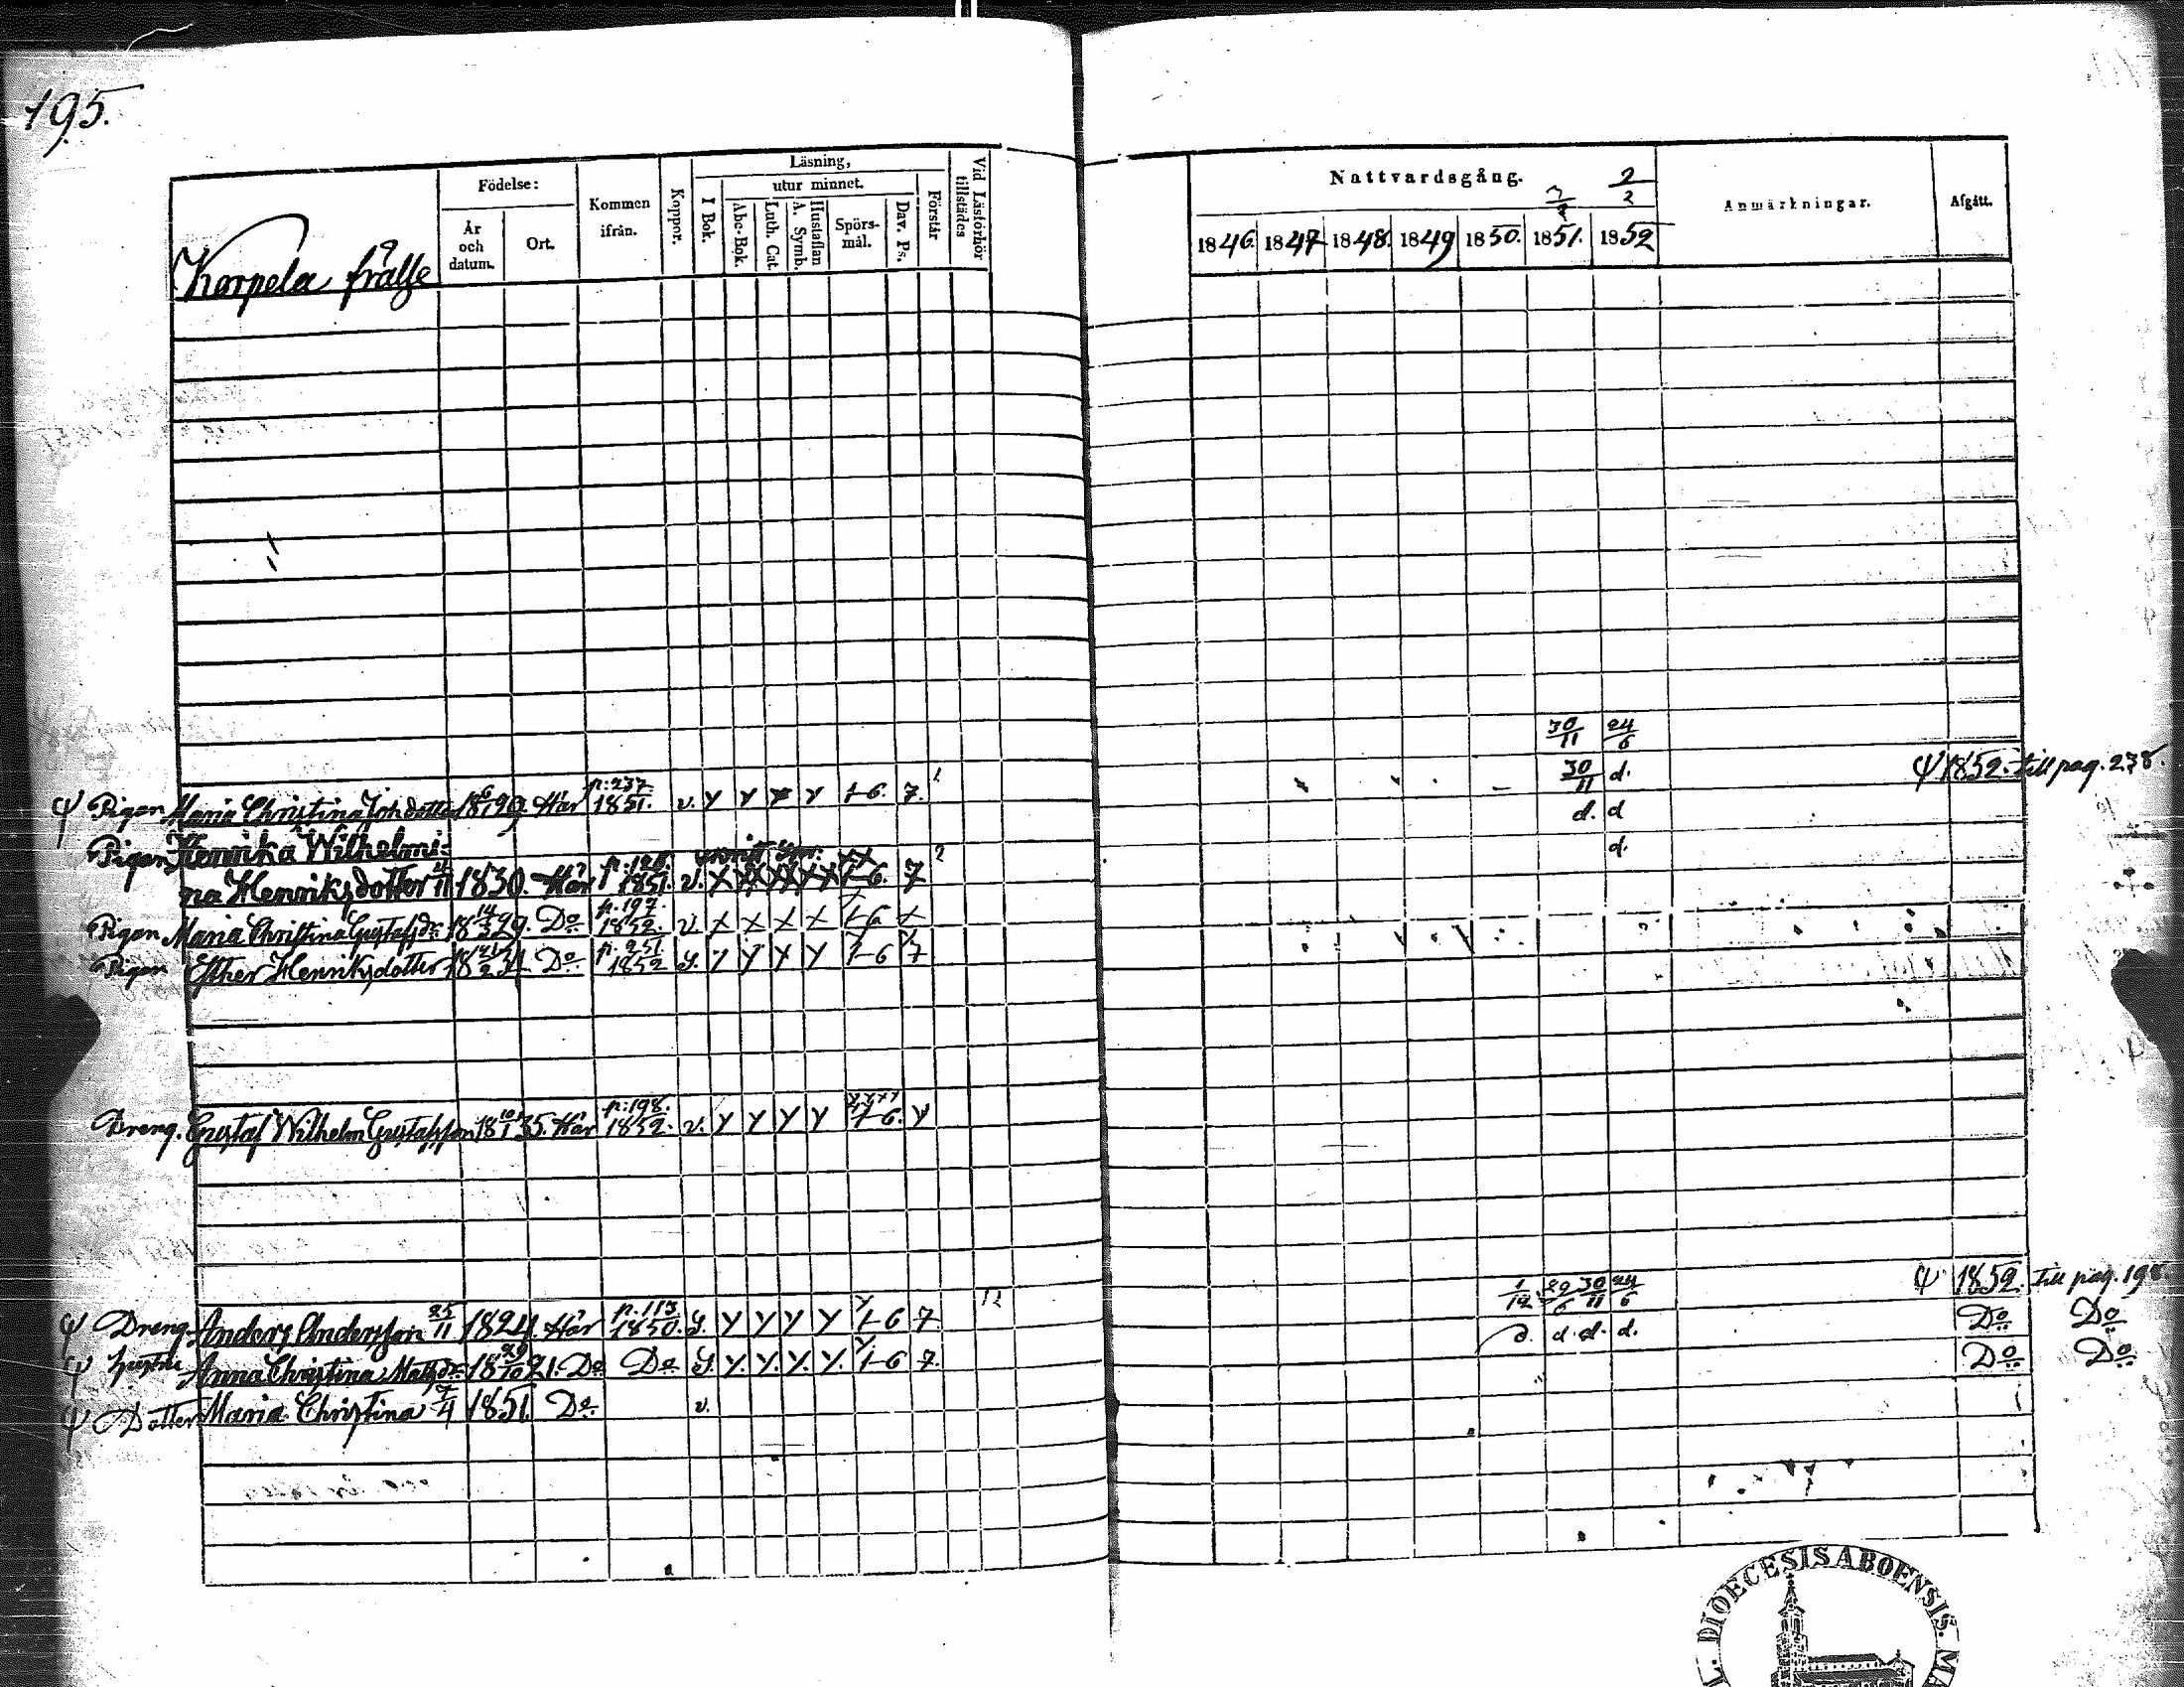 195.
Korpela frälse
Födelse:
År och datum.
Ort.
Kommen ifrån.
Koppor.
Läsning,
I Bok.
utur minnet.
Abc-Bok.
Luth. Cat.
A. Symb.
Hustaflan
Spörs-mål.
Dav. Ps.
Förstår
Vid Läsförhör tillstädes
Nattvardsgång.
2/2
1846. 1847 1848. 1849 1850. 1851. 1852
Anmärkningar.
Afgått.
30/11 24/6
ψ Pigan Maria Christina Joh.dotter 18 6/1 29. Här p:237. 1851. v. Y Y Y Y 1-6. 7. 30/11 d. ψ 1852. till pag. 238.
Pigan Henrika Wilhelmi- d. d
na Henriksdotter 1830. Här 1851. v. X X X X X 1-6. 7 d.
Pigan Maria Christina Gustafsdr 18 14/3 29. Do p.197. 1852. v. X X X X 1-6 X
Pigan Esther Henriksdotter Do p.251. 1852 y. Y Y Y Y 1-6 7
Dreng. Gustaf Wilhelm Gustafsson 18 10/1 35. Här p:198. 1852. v. Y Y Y Y 1-6. Y
ψ Dreng. Anders Andersson 25/11 1824. Här p.113 1850. y. Y Y Y Y 1-6 7. 1/12 30/11 24/6 ψ 1852. till pag. 198
ψ Hustru Anna Christina Matsdr 18 29/10 21. Do Do y. Y. Y. Y. Y. 1-6 7. d. d. d. d. Do Do
ψ Dotter Maria Christina 7/4 1851. Do v. Do Do
DIOECESIS ABOENSIS.